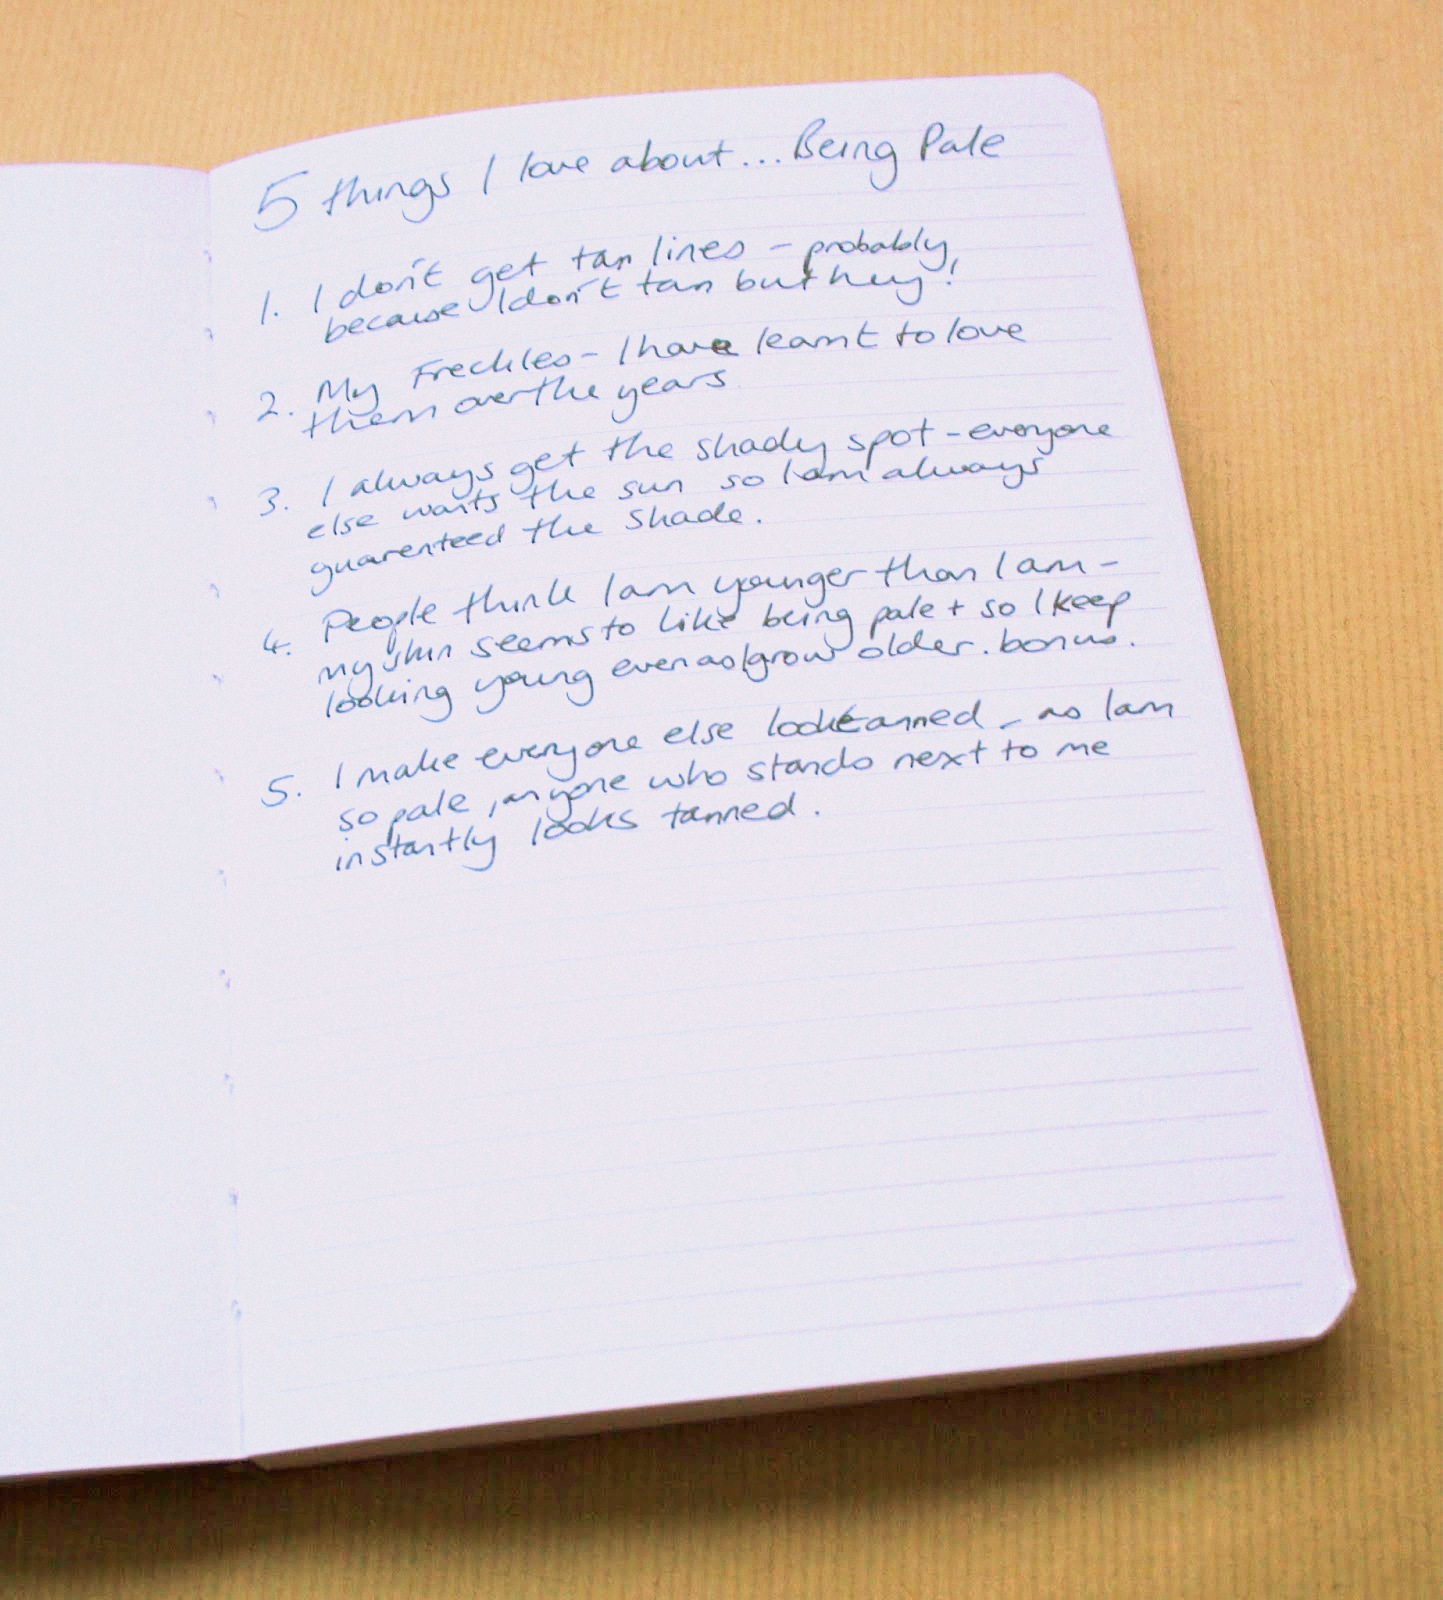 5 things I love about... Being Pale
1. I don't get tan lines - probably
because I don't tan but hey!
2. My Freckles - I have learnt to love
them over the years
3. I always get the shady spot - everyone
else wants the sun so I am always
guarenteed the shade.
4. People think I am younger than I am -
my skin seems to like being pale + so I keep
looking young even as I grow older. bonus.
5. I make everyone else look tanned - as I am
so pale, anyone who stands next to me
instantly looks tanned.